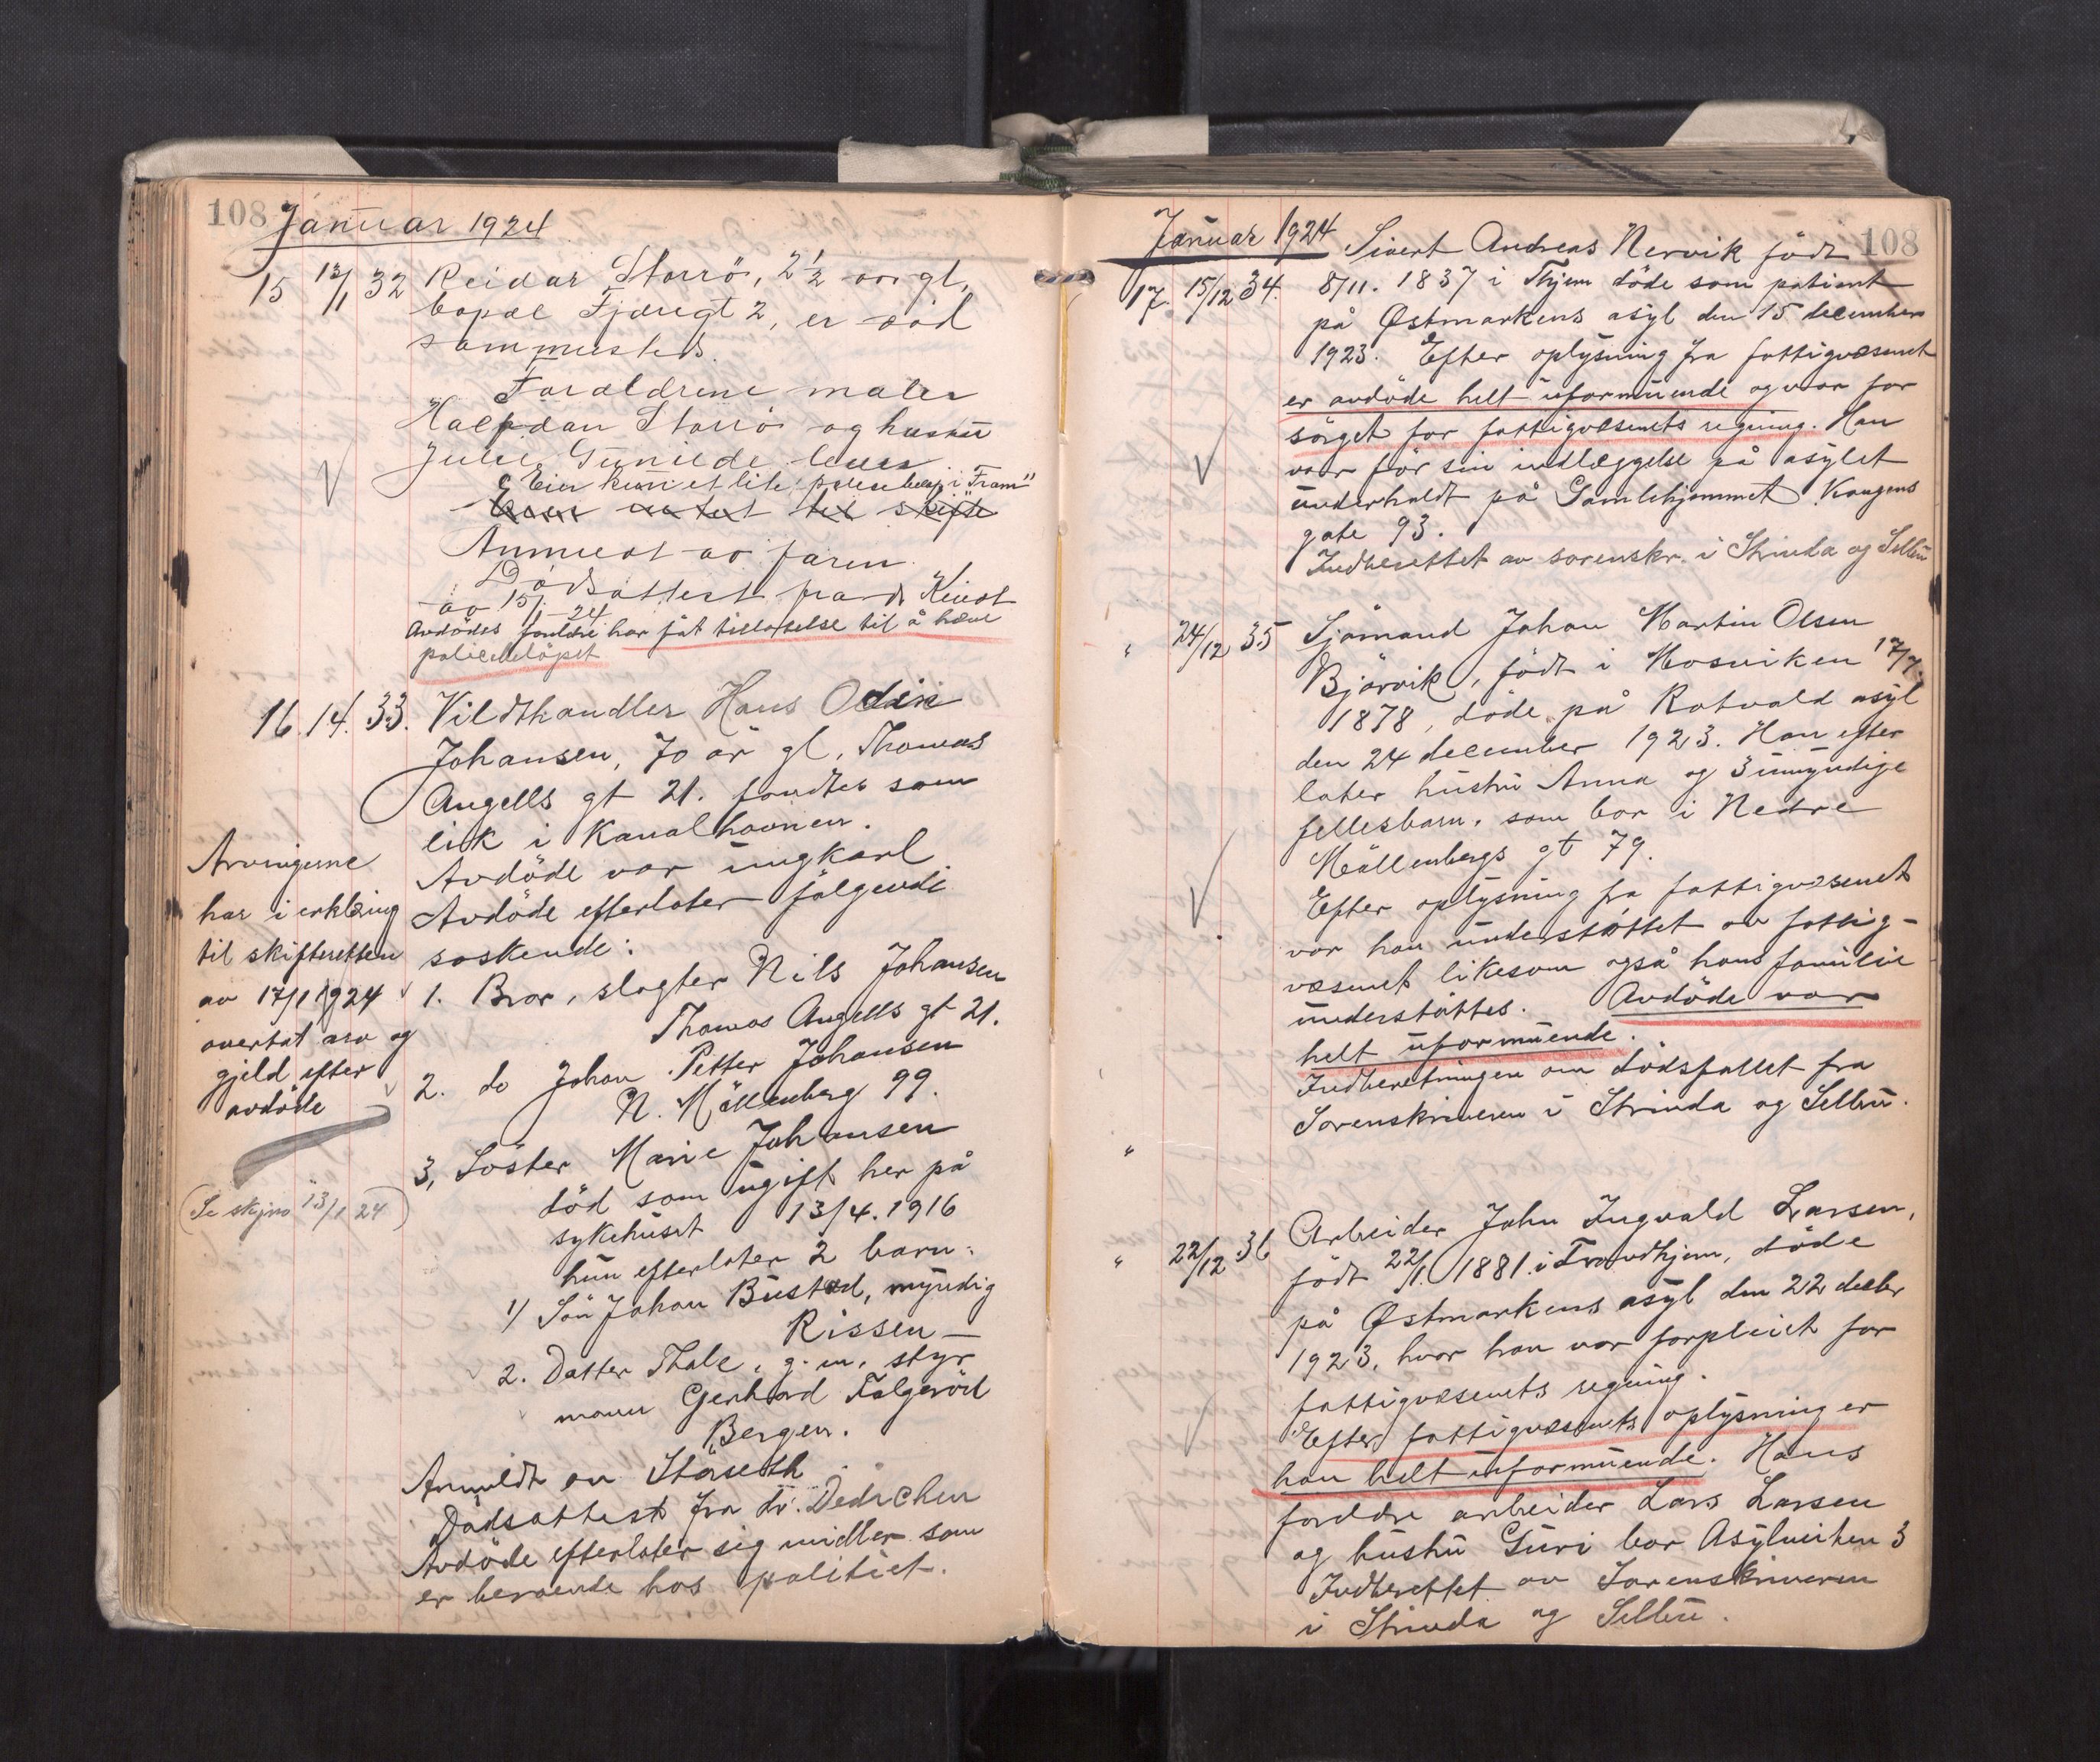 108 Januar 1924
15 12/1 32 Reidar Storrö, 2 1/2 aar gl.
bopæl Fjæregt 2, er död
sammesteds.
Foræeldrene maler
Halfdan Storrö og hustru
Julie Gunilde lever
Eier kun et lite polisebelöp i "Fram"
Anmeldt av faren.
Dödsattest fra dr Kindt
av 15/1-24
Avdödes foreldre har fåt tillatelse til å hæve
policebelöpet
16. 14. 33. Vildthandler Hans Odin
Johansen, 70 år gl, Thomas
Angells gt 21. fandtes som
lik i Kanalhavnen.
Avdöde var ungkarl
Avdöde efterlater fölgende
söskende:
1. Bror, slagter Nils Johansen
Thomas Angells gt 21.
2. do Johan Petter Johansen
N. Möllenberg 99.
3, Söster Marie Johansen
död som ugift her på
sykehuset 13/4.1916
hun efterlater 2 barn:
1/ Sön Johan Bustad, myndig
Rissen –
2. Datter Thale, g. m. styr
mann Gerhard Falgeröd
Bergen.
Anmeldt av Störseth
Dödsattest fra dr. Dedichen
Avdöde efterlater sig midler som
er beroende hos politiet.
Arvingerne
har i erklæring
til skifteretten
av 17/1 1924
overtat arv og
gjeld efter
avdöde
(Se skjiv 13/1 24)
Januar 1924 108
17. 15/12 34. Sivert Andreas Nervik födt
8/11. 1837 i Thjem döde som patient
på Østmarkens asyl den 15 december
1923. Efter oplysning fra fattigvæsenet
er avdöde helt uformuende og var for
sörget for fattigvæsenets regning. Han
var för sin indlæggelse på asylet
underholdt på Gamlehjemmet Kongens
gate 93.
Indberettet av sorenskr. i Strinda og Selbu
" 24/12 35 Sjömand Johan Martin Olsen
Björvik, födt i Mosviken 17/7.
1878, döde på Rotvold asyl
den 24 december 1923. Han efter
later hustru Anna og 3 umyndige
fellesbarn. som bor i Nedre
Möllenbergs gt 79.
Efter oplysning fra fattigvæsenet
var han understöttet av fattig-
væsenet likesom også hans familie
understöttes. Avdöde var
helt uformuende.
Indberetningen om dödsfallet fra
Sorenskriveren i Strinda og Selbu.
"
" 22/12 36 Arbeider John Ingvald Larsen,
födt 22/1. 1881. i Trondhjem, döde
på Østmarkens asyl den 22 decbr
1923, hvor han var forpleiet for
fattigvæsenets regning.
Efter fattigvæsenets oplysning er
han helt uformuende. Hans
foreldre arbeider Lars Larsen
og hustru Guri bor Asylveiten 3
Indberettet av Sorenskriveren
i Strinda og Selbu.